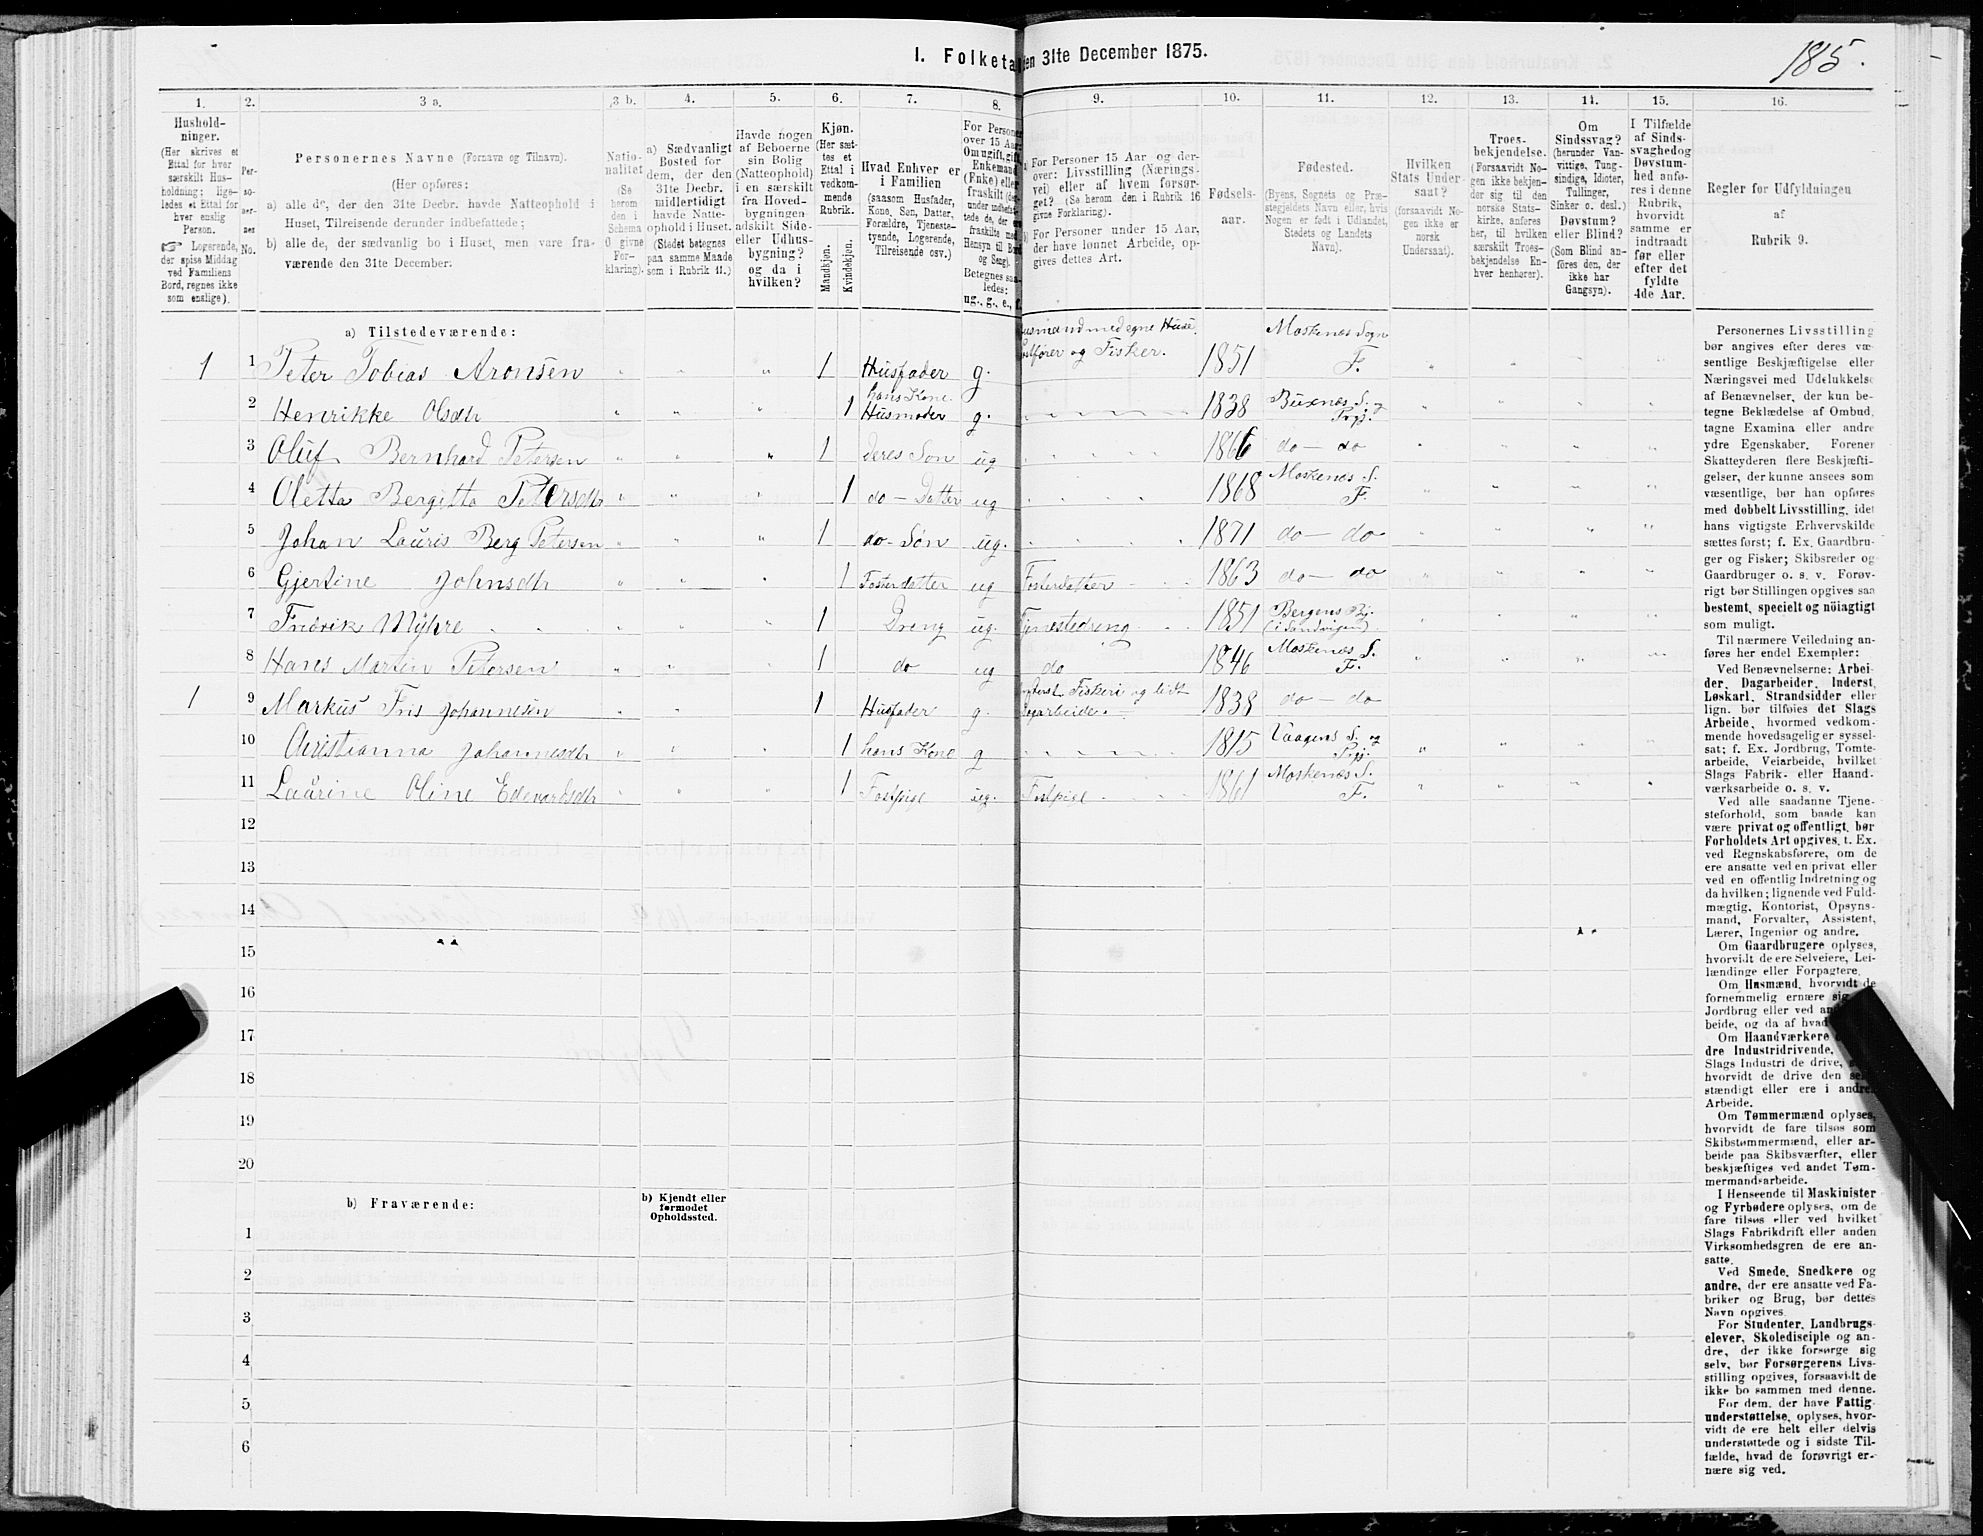 1. Folketa en 31te December 1875.
185.
1. 2. 3 a. 3 b. 4. 5. 6. 7. 8. 9. 10. 11. 12. 13. 14. 15. 16.
Hushold-
ninger.
(Her skrives et
Ettal for hver
særskilt Hus-
holdning; lige-
ledes et Ettal for
hver enslig
Person.
☞ Logerende,
der spise Middag
ved Familiens
Bord, regnes ikke
som enslige).
Per-
so-
ner-
nes
No.
Personernes Navne (Fornavn og Tilnavn).
(Her opføres:
a) alle de, der den 31te Decbr. havde Natteophold i
Huset, Tilreisende derunder indbefattede;
b) alle de, der sædvanlig bo i Huset, men vare fra-
værende den 31te December.
Natio-
nalitet
(Se
herom
den i
Schema
0 givne
For-
klaring).
a) Sædvanligt
Bosted for
dem, der den
31te Decbr.
midlertidigt
havde Natte-
ophold i Huset.
(Stedet betegnes
paa samme Maade
som i Rubrik 11.)
Havde nogen
af Beboerne
sin Bolig
(Natteophold)
i en særskilt
fra Hoved-
bygningen
adskilt Side-
eller Udhus-
bygning?
og da i
hvilken?
Kjøn.
(Her sæt-
tes et
Ettal i
vedkom-
mende
Rubrik.
Mandkjøn.
Kvindekjøn.
Hvad Enhver er
i Familien
(saasom Husfader,
Kone, Søn, Datter,
Forældre, Tjeneste-
tyende, Logerende,
Tilreisende osv.)
For Personer
over 15 Aar:
Om ugift, gift,
Enkemand
(Enke) eller
fraskilt (der-
under indbefat-
tede de, der ere
fraskilte med
Hensyn til Bord
og Seng).
Betegnes saa-
ledes:
ug., g., e., f.
a) For Personer 15 Aar og der-
over: Livsstilling (Nærings-
vei) eller af hvem forsør-
get? (Se herom den i Rubrik 16
givne Forklaring).
b) For Personer under 15 Aar,
der have lønnet Arbeide, op-
gives dettes Art.
Fødsels-
aar.
Fødested.
(Byens, Sognets og Præ-
stegjeldets Navn eller, hvis
Nogen er født i Udlandet,
Stedets og Landets
Navn).
Hvilken
Stats Under-
saat?
(forsaavidt No-
gen ikke er
norsk
Undersaat).
Troes-
bekjendelse.
(Forsaavidt No-
gen ikke bekjen-
der sig til den
norske Stats-
kirke, anføres
her, til hvilken
særskilt Troes-
bekjendelse En-
hver henhører).
Om
Sindssvag?
(herunder Van-
vittige, Tung-
sindige, Idioter,
Tullinger,
Sinker o. desl.)
Døvstum?
eller Blind?
(Som Blind an-
føres den, der
ikke har
Gangsyn).
I Tilfælde
af Sinds-
svaghed og
Døvstum-
hed anfø-
res i denne
Rubrik,
hvorvidt
samme er
indtraadt
før eller
efter det
fyldte
4de Aar.
Regler for Udfyldningen
af
Rubrik 9.
a) Tilstedeværende:
usmand med egne Huse. Moskenæs Sogn
1 1 Peter Tobias Aronsen 1 Husfader g. fører og Fisker. 1851 F.
hans Kone
2 Henrikke Olsdtr 1 Husmoder g. 1838 Buxnæs S. og Prgj.
3 Oluf Bernhard Petersen 1 deres Søn ug 1866 do — do
4 Oletta Bergitta Petersdtr 1 do — Datter ug 1868 Moskenæs S. F.
5 Johan Lauris Berg Petersen 1 do - Søn ug. 1871 do — do
6 Gjertine Johnsdtr 1 Fosterdatter ug Fosterdatter 1863 do — do
7 Fredrik Myhre 1 Dreng ug. Tjenestedreng 1851 Bergens By. (i Sandvigen)
8 Hans Martin Petersen 1 do ug do 1846 Moskenæs S. F.
1 9 Markus Friis Johannesen 1 Husfader g. Inderst Fiskeri og lidt Dagarbeide. 1838 do — do
10 Christianna Johannesdtr 1 hans Kone g 1815 Vaagens S. og Prgj.
11 Laurine Oline Edevardsdtr 1 Fostpige ug. Fostpige 1861 Moskenæs S. F.
12
13
14
15
16
17
18
19
20
b) Fraværende:
b) Kjendt eller
formodet
Opholdssted.
1
2
3
4
5
6
Personernes Livsstilling
bør angives efter deres væ-
sentlige Beskjæftigelse eller
Næringsvei med Udelukkelse
af Benævnelser, der kun be-
tegne Beklædelse af Ombud,
tagne Examina eller andre
ydre Egenskaber. Forener
Skatteyderen flere Beskjæfti-
gelser, der kunne ansees som
væsentlige, bør han opføres
med dobbelt Livsstilling, idet
hans vigtigste Erhvervskilde
sættes først; f. Ex. Gaardbru-
ger og Fisker; Skibsreder og
Gaardbruger o. s. v. Forøv-
rigt bør Stillingen opgives saa
bestemt, specielt og nöiagtigt
som muligt.
Til nærmere Veiledning an-
føres her endel Exempler:
Ved Benævnelserne: Arbei-
der, Dagarbeider, Inderst,
Løskarl, Strandsidder eller
lign. bør tilføies det Slags
Arbeide, hvormed vedkom-
mende hovedsagelig er syssel-
sat; f. Ex. Jordbrug, Tomte-
arbeide, Veiarbeide, hvilket
Slags Fabrik- eller Haand-
værksarbeide o. s. v.
Ved alle saadanne Tjene-
steforhold, som baade kan
være privat og offentligt, bør
Forholdets Art opgives, t. Ex.
ved Regnskabsførere, om de
ere ansatte ved en privat eller
ved en offentlig Indretning og
da hvilken; lignende ved Fuld-
mægtig, Kontorist, Opsyns-
mand, Forvalter, Assistent,
Lærer, Ingeniør og andre.
Om Gaardbrugere oplyses,
hvorvidt de ere Selveiere, Lei-
lændinge eller Forpagtere.
Om Husmænd, hvorvidt de
fornemmelig ernære sig
Jordbrug eller ved an
beide, og da af hvad
Om Haandværkere
dre Industridrivende,
Slags Industri de drive,
hvorvidt de drive den se
stændigt eller ere i andres
Arbeide.
Om Tømmermænd oplyses,
hvorvidt de fare tilsøs som
Skibstømmermænd, eller ar-
beide paa Skibsværfter, eller
beskjæftiges ved andet Tøm-
mermandsarbeide.
I Henseende til Maskinister
og Fyrbødere oplyses, om de
fare tilsøs eller ved hvilket
Slags Fabrikdrift eller anden
Virksomhedsgren de ere an-
satte.
Ved Smede, Snedkere og
andre, der ere ansatte ved Fa-
briker og Brug, bør dettes
Navn opgives.
For Studenter, Landbrugs-
elever, Skoledisciple og an-
dre, der ikke forsørge sig
selv, bør Forsørgerens Livs-
stilling opgives, forsaavidt de
ikke bo sammen med denne.
For dem, der have Fattig-
understøttelse, oplyses, hvor-
vidt de ere helt eller delvis
understøttede og i sidste Til-
fælde, hvad de forøvrigt er-
nære sig ved.